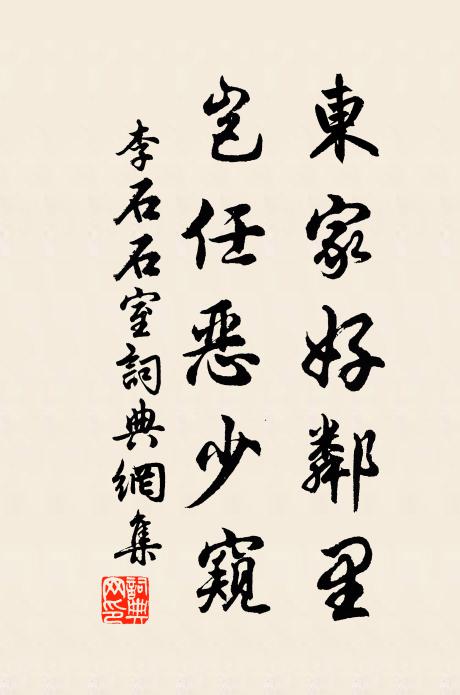 東家好鄰里
豈任惡少窺
李石石室詞典網集
詞典網印